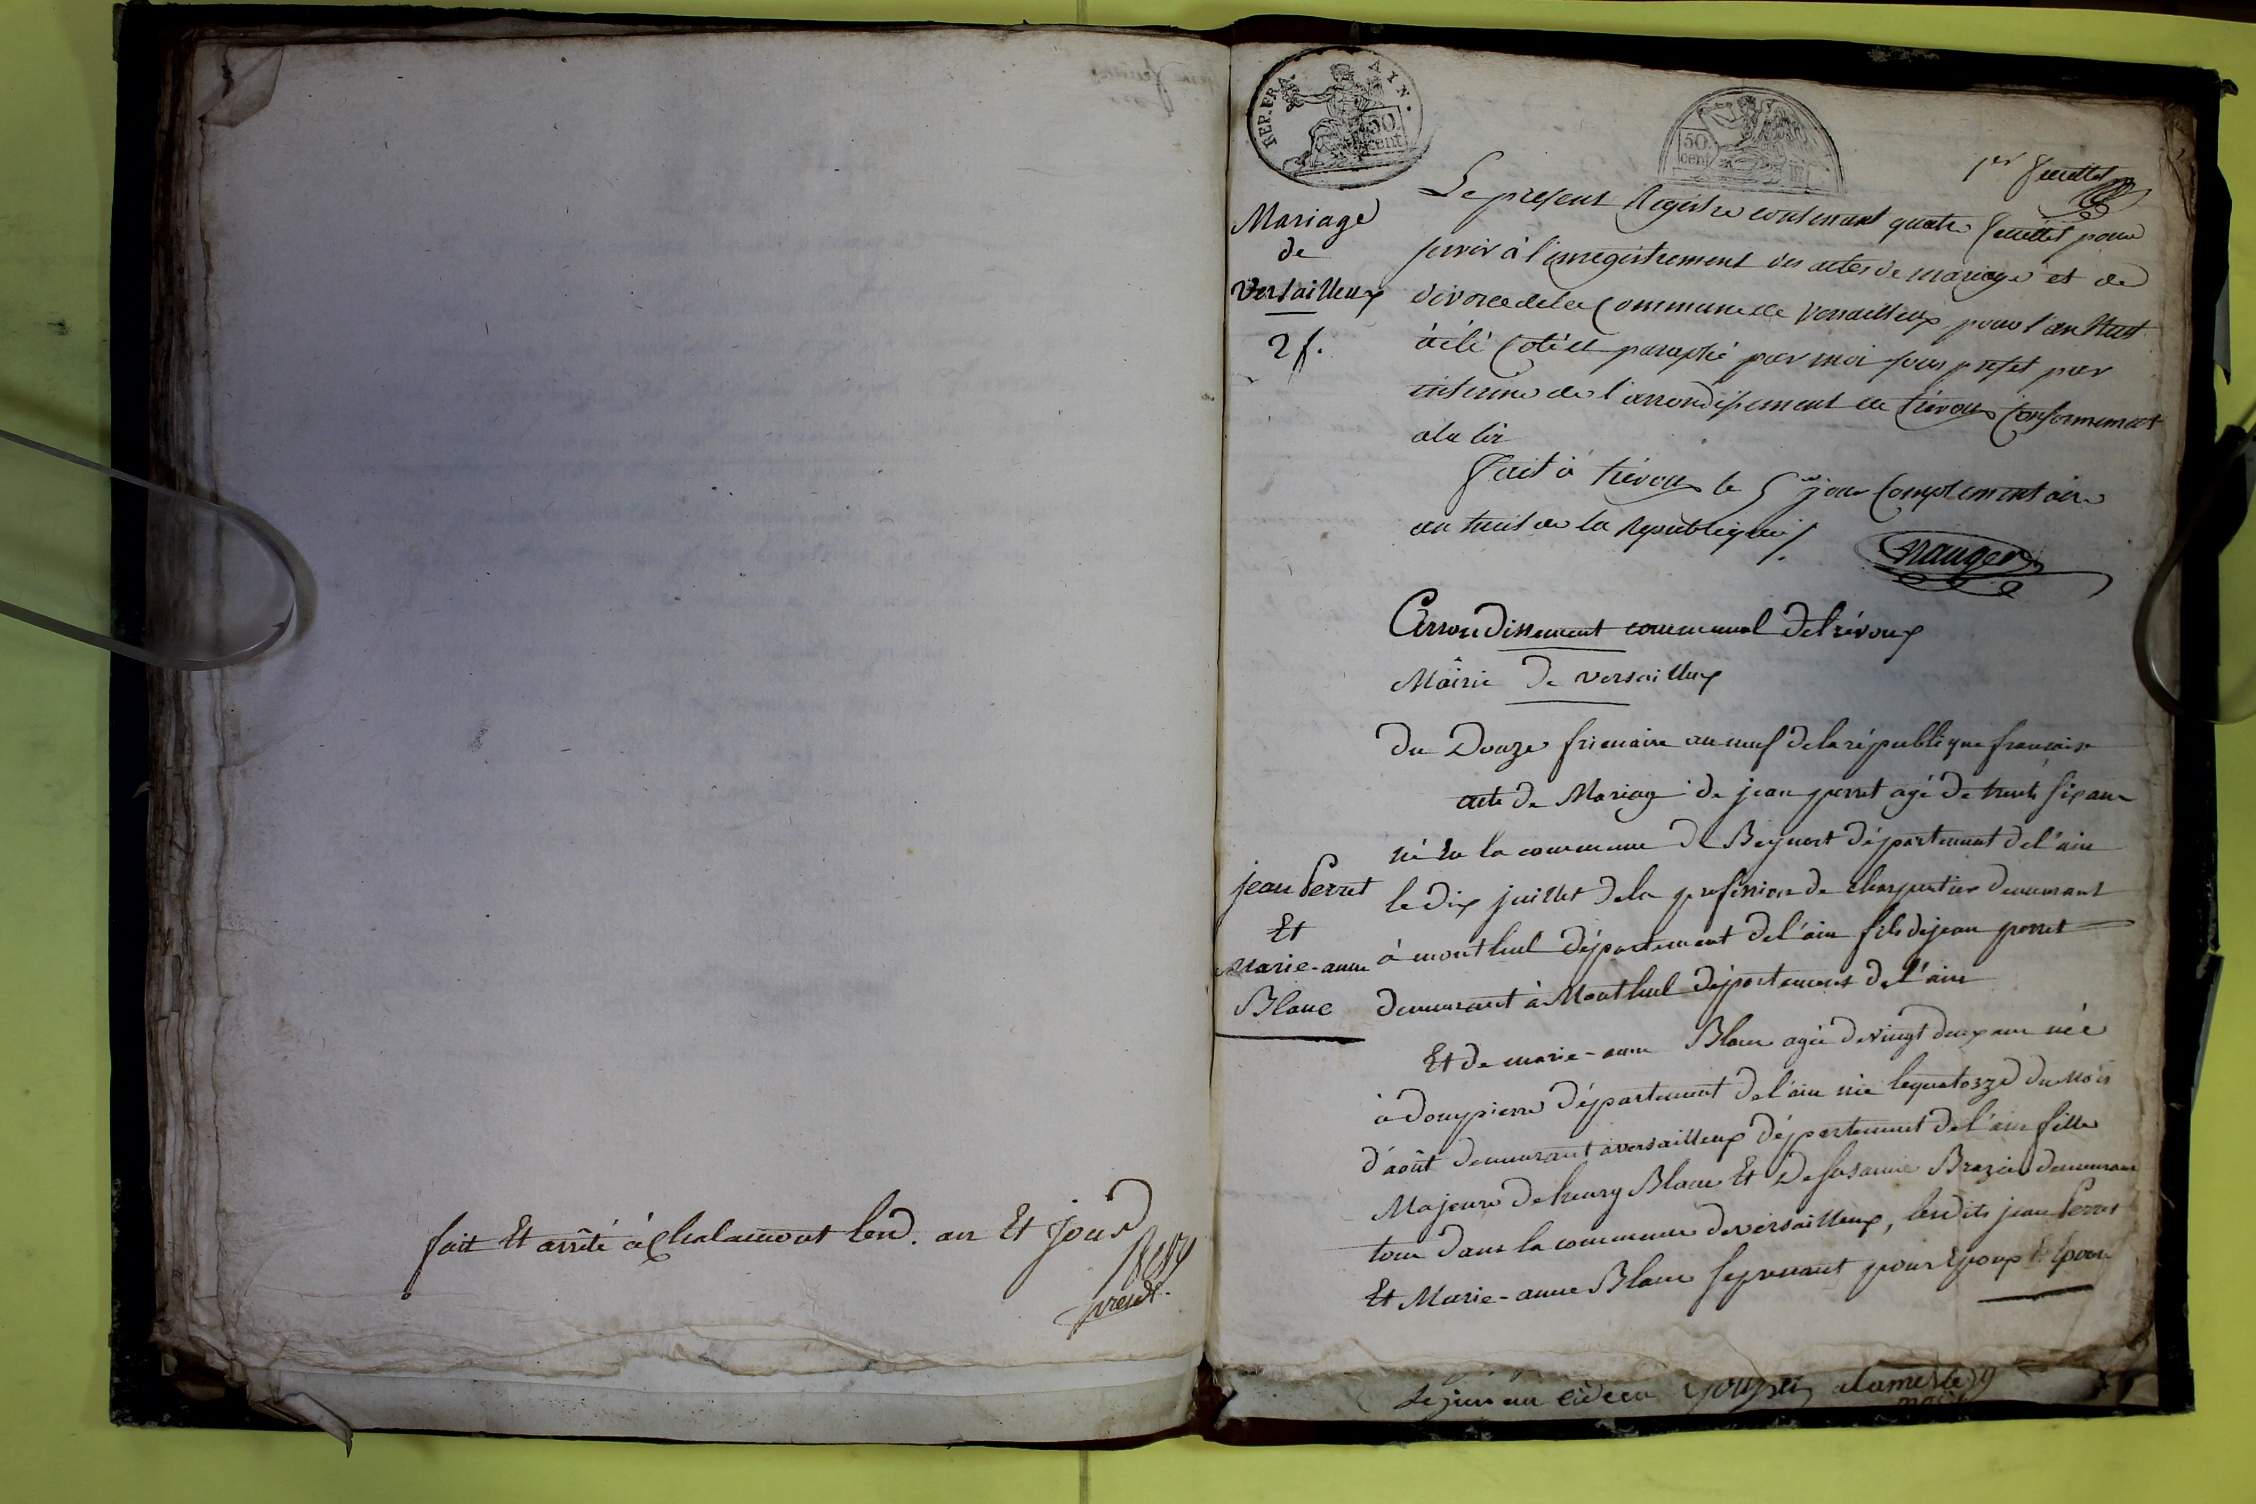 fait Et arrêté à Chalamont led. an Et jour
presdt.
REP. FRA.
AIN.
50
cent
50
cent
1er feuillet
Mariage
de
Versailleux
2 f.
Le present Registre contenant quatre feuillets pour
servir à l'enregistrement des actes de mariage et de
divorce de la Commune de Versailleux pour l'an
à été Coté et paraphé par moi sous prefet par
interim de l'arrondissement de trévoux Conformement
a la loi
fait à trévoux le 5e jour Complementaire
an huit de la Republique /.
Arrondissement communal de trévoux
Mairie de versailleux
du Douze frimaire an neuf de la république française
acte de Mariage de jean perret agé de trente six ans
né en la commune de Beynost département de l'ain
le dix juillet de la profession de charpentier demeurant
à montluel département de l'ain fils de jean perret
demeurant à Montluel département de l'ain
jean Perret
Et
Marie-anne
Blanc
Et de marie-anne Blanc agée de vingt deux ans née
à dompierre département de l'ain née le quatorze du mois
d'août demeurant a versailleux département de l'ain fille
Majeure de henry Blanc Et de susanne Brazier demeurant
tous dans la commune de versailleux, lesdits jean Perret
Et Marie-anne Blanc se prenant pour Epoux Et Epouse